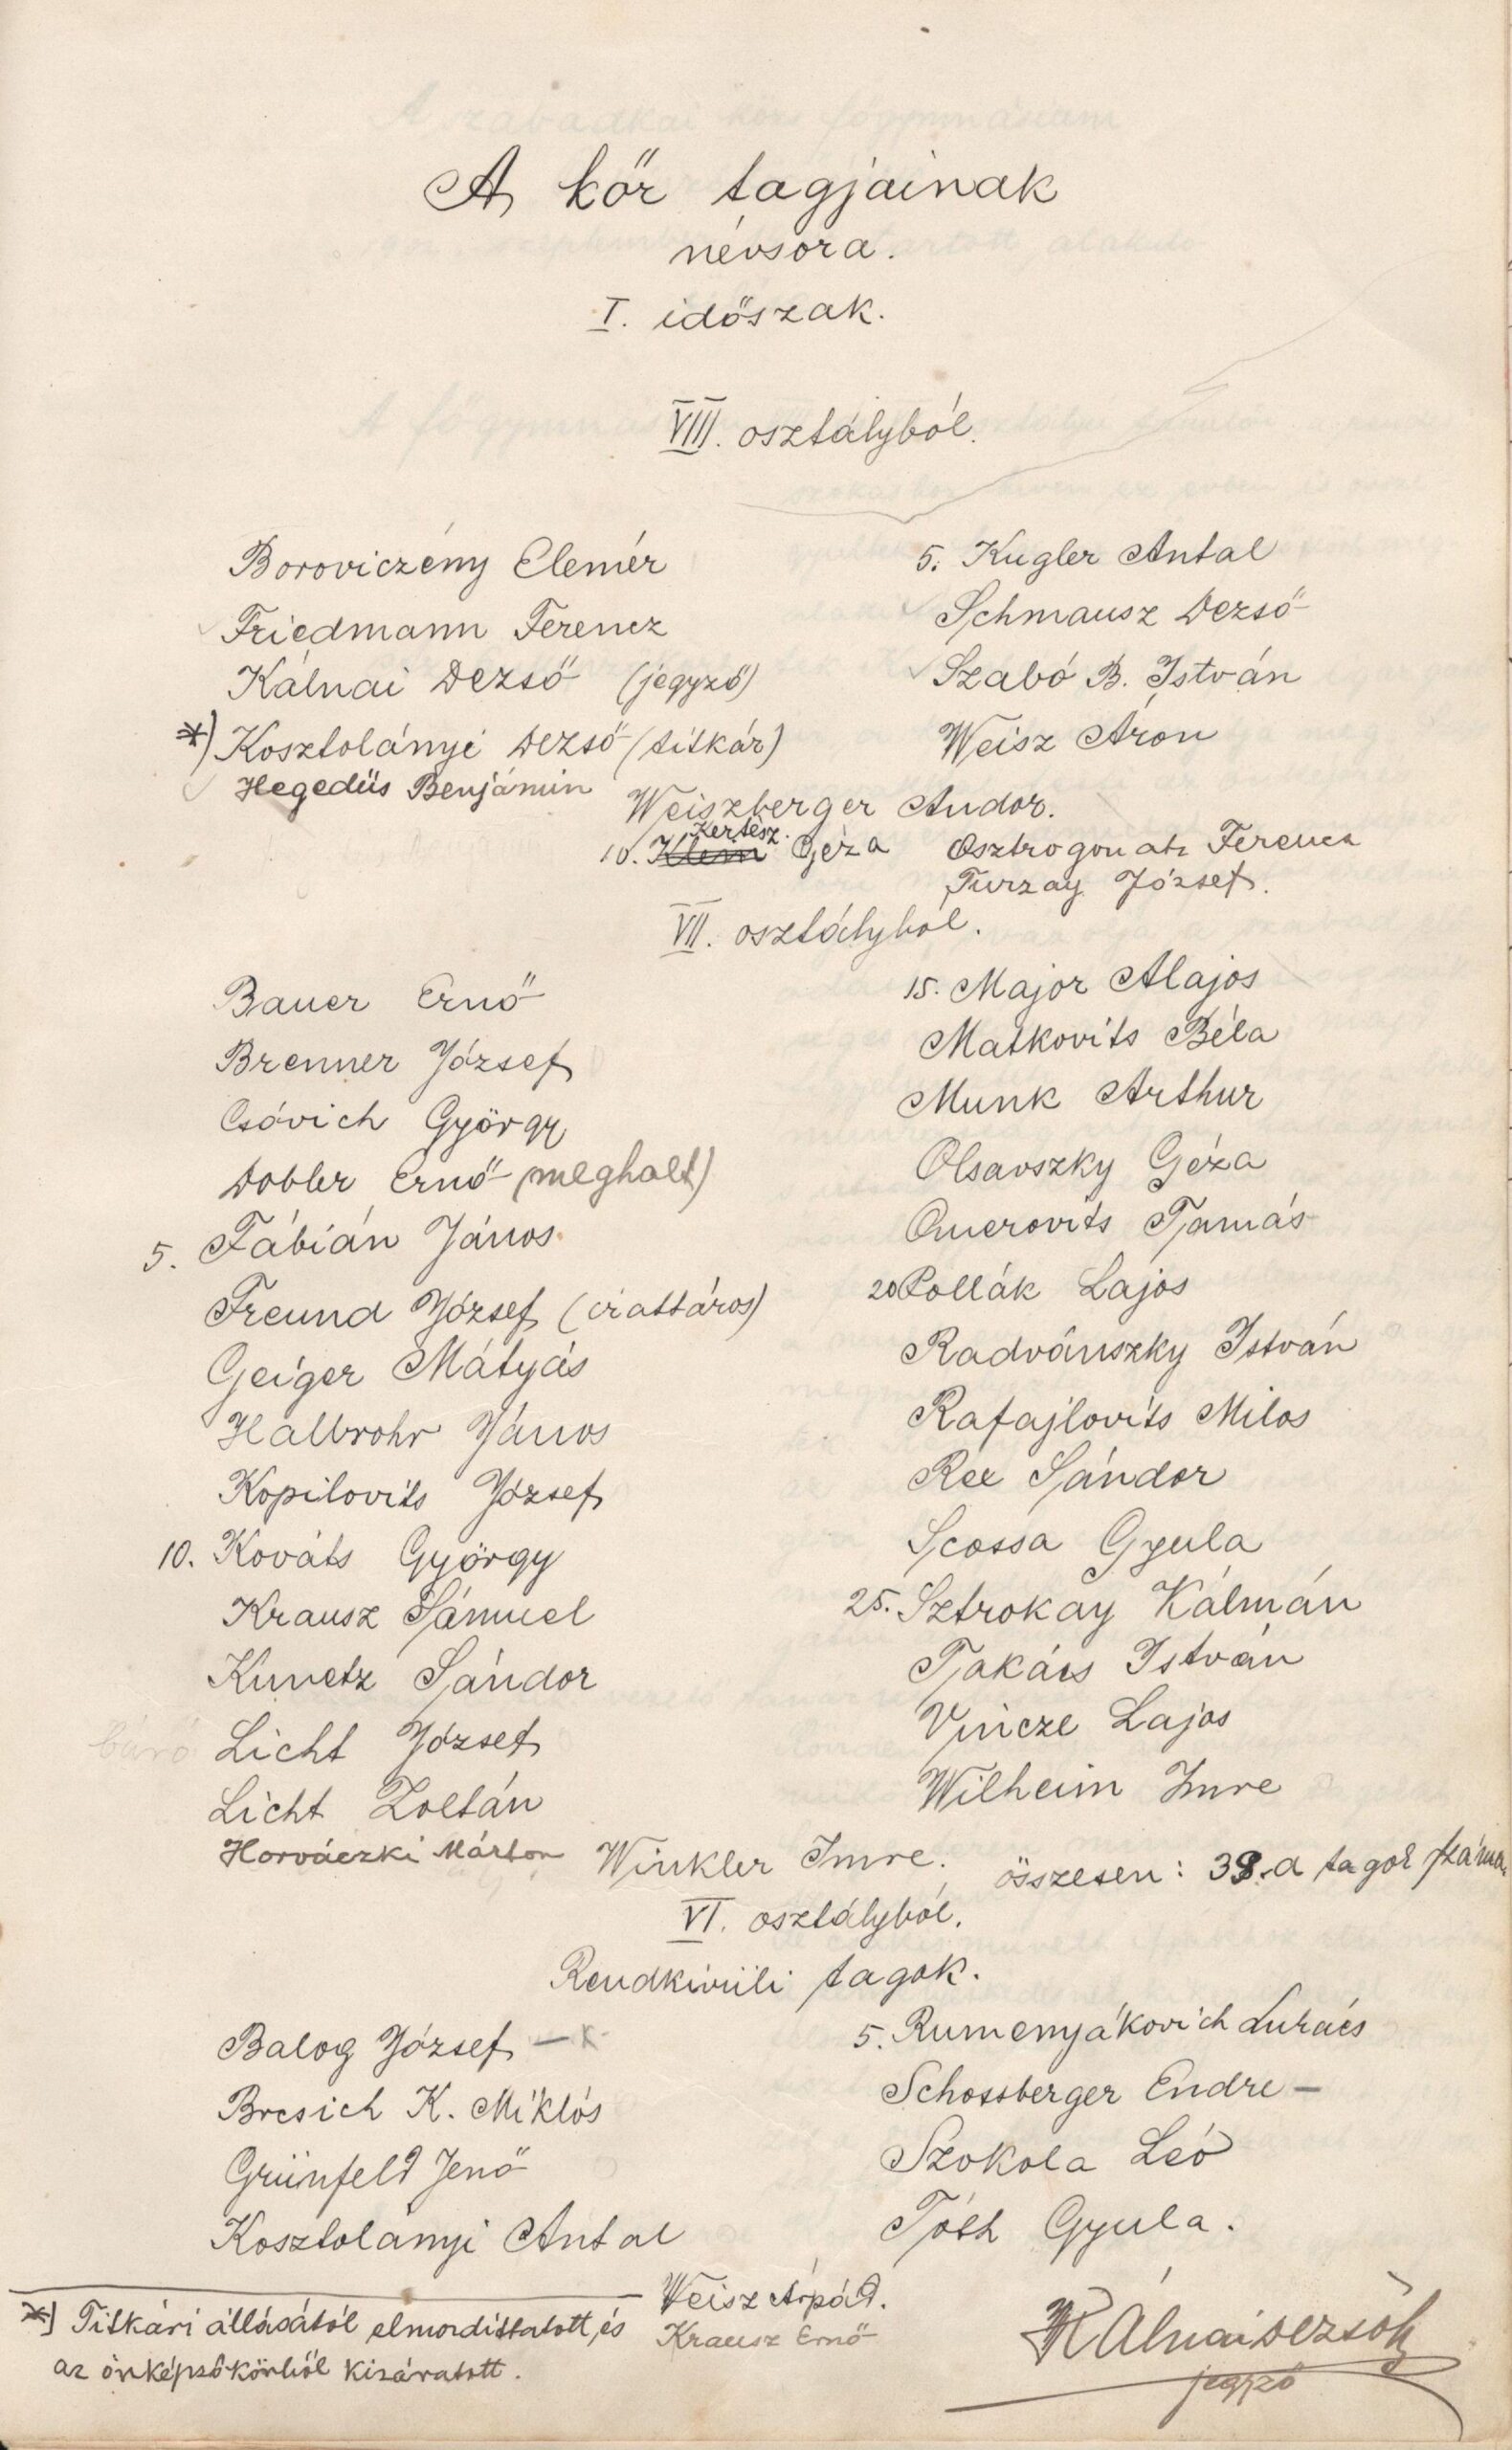 A kör tagjainak
névsora.
I. időszak.
VIII. osztályból.
Boroviczény Elemér
Friedmann Ferencz
Kálnai Dezső (jegyző)
*) Kosztolányi Dezső (titkár)
Hegedüs Benjámin
5. Kugler Antal
Schmausz Dezső
Szabó B. István
Weisz Áron
Weiszberger Andor.
Kertész.
10. Klein Géza
Osztrogonatz Ferencz
Turzay József.
VII. osztályból.
Bauer Ernő
Brenner József
Csóvich György
Dobler Ernő (meghalt)
5. Fábián János
Freund József (irattáros)
Geiger Mátyás
Halbrohr János
Kopilovits József
10. Kováts György
Krausz Sámuel
Kunetz Sándor
báró Licht József
Licht Zoltán
Horváczki Márton
15. Major Alajos
Matkovits Béla
Munk Arthur
Olsavszky Géza
Omerovits Tamás
20 Pollák Lajos
Radvánszky István
Rafajlovits Milos
Rex Sándor
Scossa Gyula
25. Sztrokay Kálmán
Takács István
Vincze Lajos
Wilheim Imre
Winkler Imre.
összesen: 38. a tagok száma.
VI. osztályból.
Rendkivüli tagok.
Balog József –
Bresich K. Miklós
Grünfeld Jenő
Kosztolányi Antal
5. Rumenyákovich Lukács
Schossberger Endre –
Szokola Leó
Tóth Gyula.
Weisz Árpád.
Krausz Ernő
*) Titkári állásától elmozdittatott, és
az önképzőkörből kizáratott.
Kálnai Dezső
jegyző